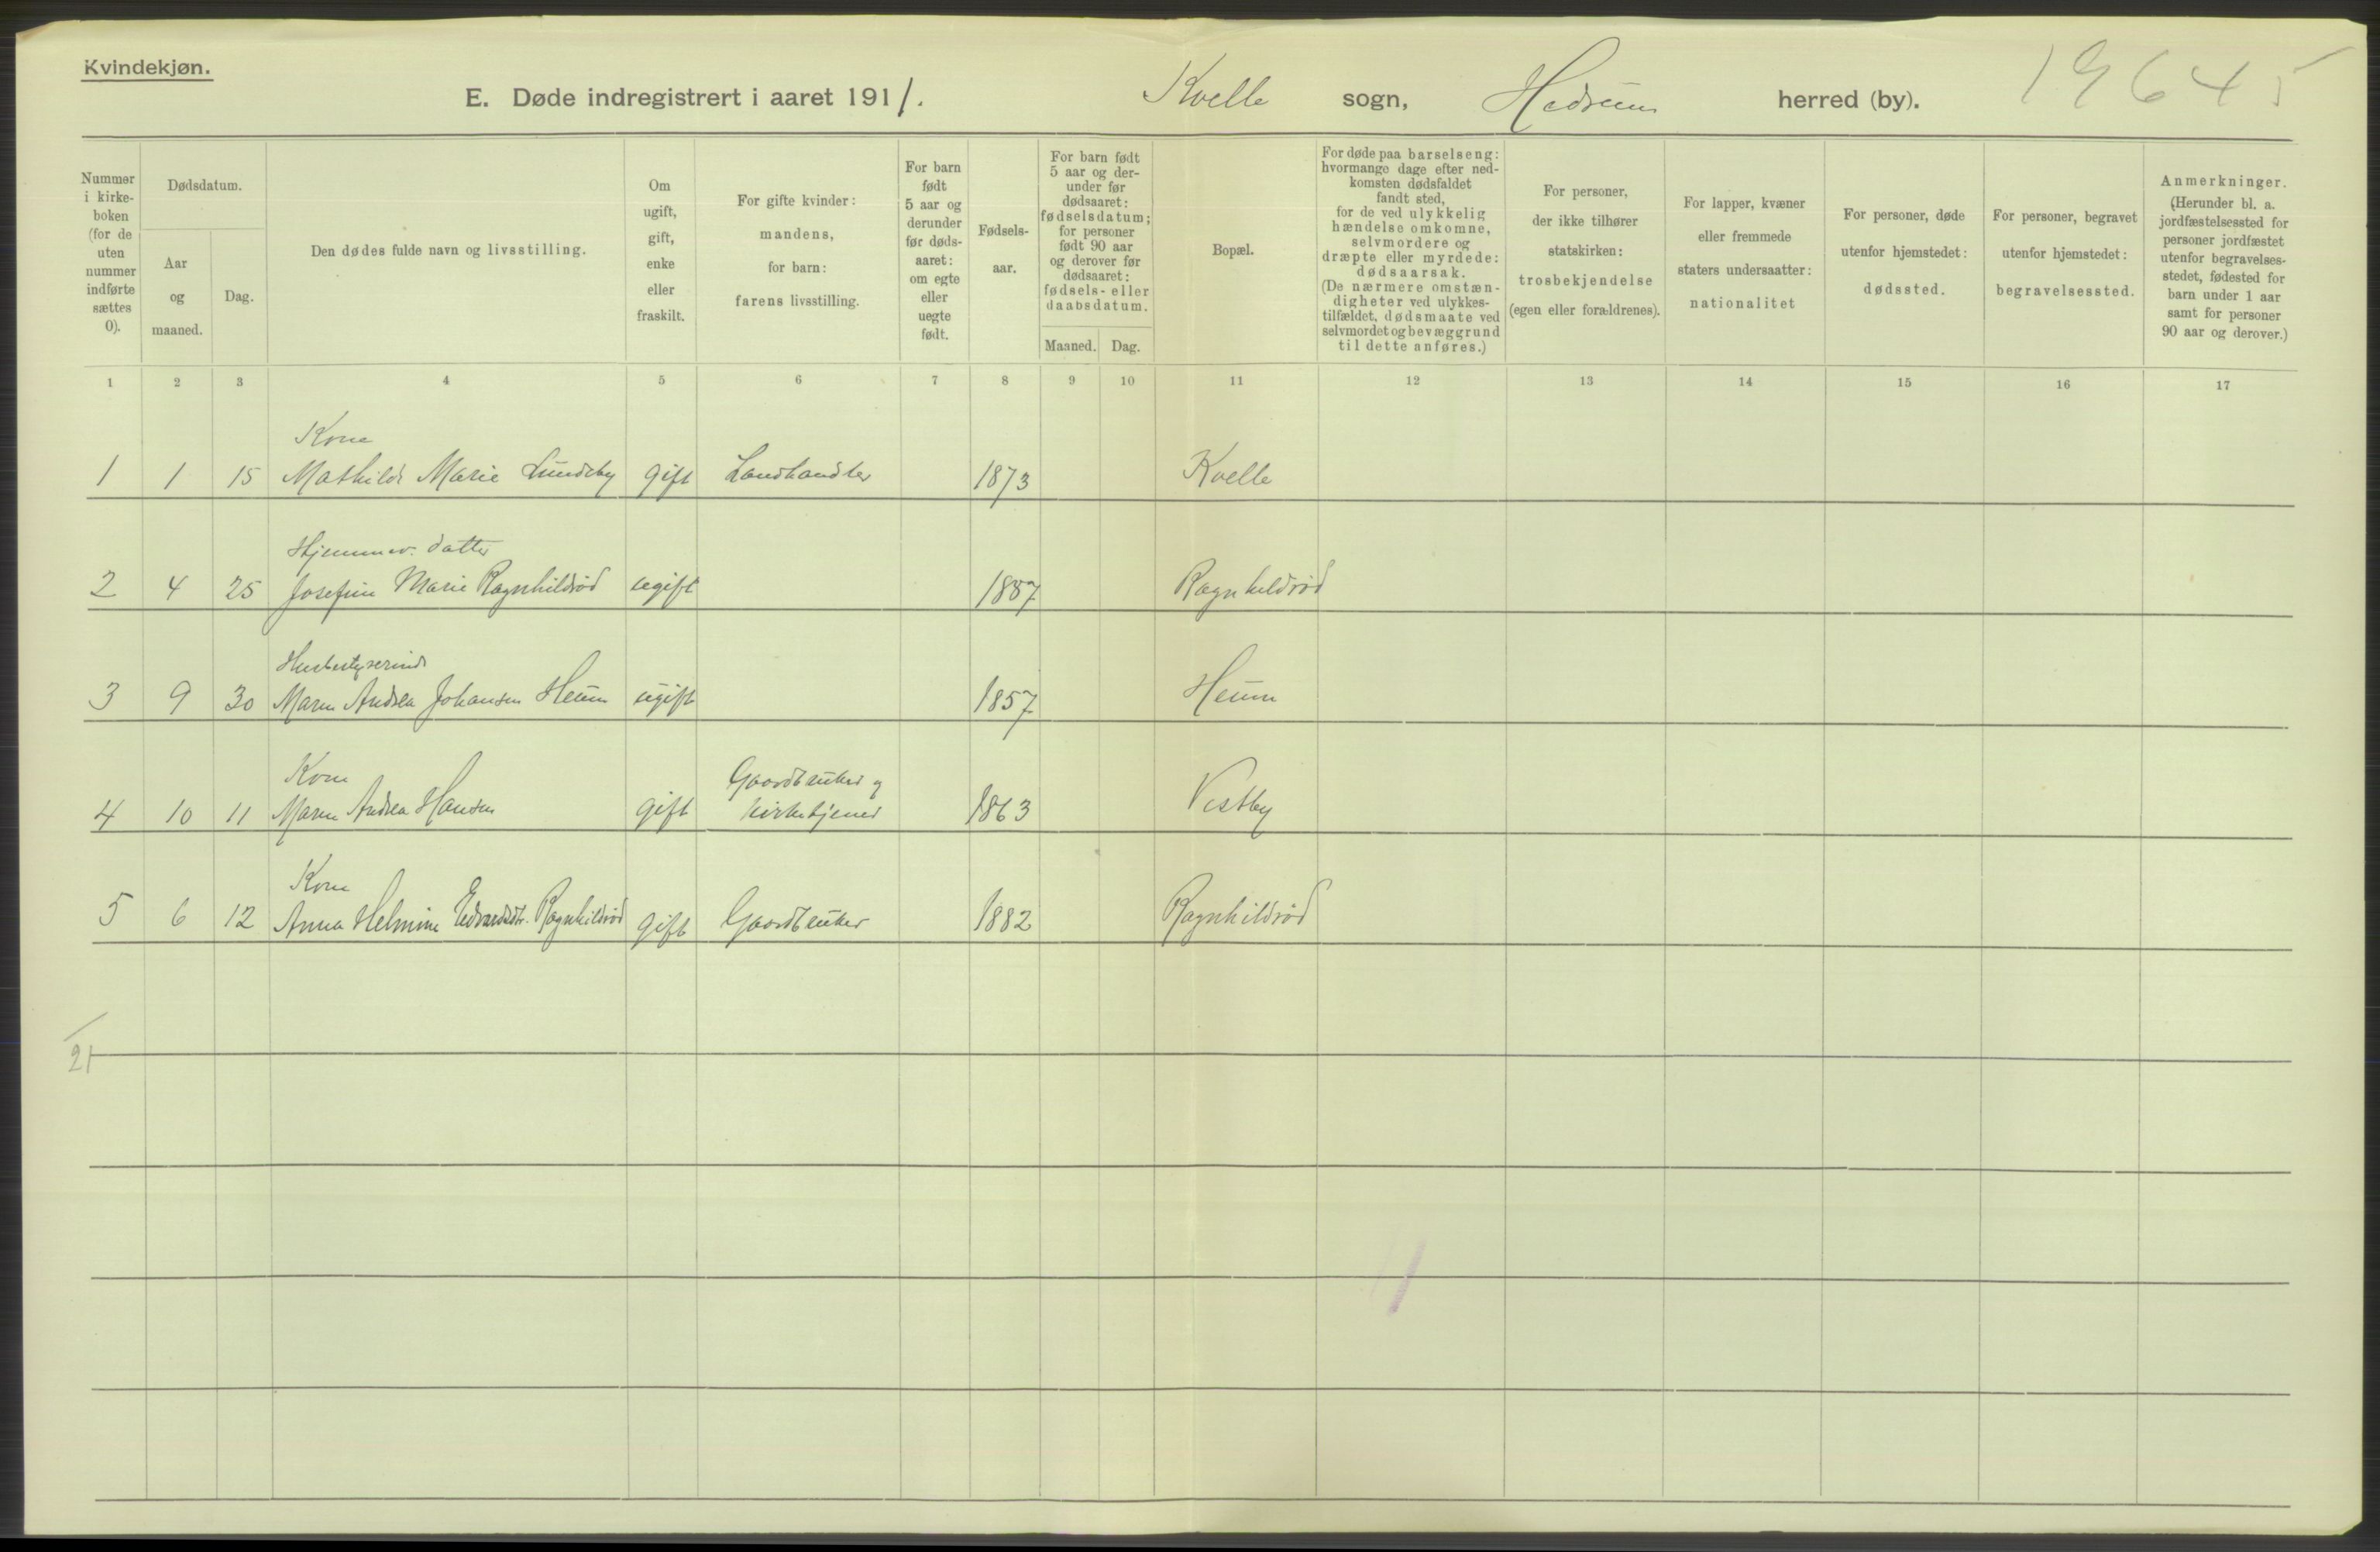 Kvindekjøn.
E. Døde indregistrert i aaret 1911. Kvelle sogn, Hedrum herred (by). 19645
Nummer i kirke-boken (for de uten nummer indførte sættes 0).
Dødsdatum.
Aar og maaned.
Dag.
Den dødes fulde navn og livsstilling.
Om ugift, gift, enke eller fraskilt.
For gifte kvinder: mandens, for barn: farens livsstilling.
For barn født 5 aar og derunder før døds-aaret: om egte eller uegte født.
Fødsels-aar.
For barn født 5 aar og der-under før dødsaaret: fødselsdatum; for personer født 90 aar og derover før dødsaaret: fødsels- eller daabsdatum.
Maaned. Dag.
Bopæl.
For døde paa barselseng: hvormange dage efter ned-komsten dødsfaldet fandt sted, for de ved ulykkelig hændelse omkomne, selvmordere og dræpte eller myrdede: dødsaarsak. (De nærmere omstæn-digheter ved ulykkes-tilfældet, dødsmaate ved selvmordet og bevæggrund til dette anføres.)
For personer, der ikke tilhører statskirken: trosbekjendelse (egen eller forældrenes).
For lapper, kvæner eller fremmede staters undersaatter: nationalitet
For personer, døde utenfor hjemstedet: dødssted.
For personer, begravet utenfor hjemstedet: begravelsessted.
Anmerkninger. (Herunder bl. a. jordfæstelsessted for personer jordfæstet utenfor begravelses-stedet, fødested for barn under 1 aar samt for personer 90 aar og derover.)
1 2 3 4 5 6 7 8 9 10 11 12 13 14 15 16 17
Kone
1 1 15 Mathilde Marie Lundeby gift Landhandler 1873 Kvelle
Hjemmev. datter
2 4 25 Josefine Marie Ragnhildrød ugift 1887 Ragnhildrød
Husbestyrerinde
3 9 30 Maren Andrea Johansen Heum ugift 1857 Heum
Kone Gaardbruker og
4 10 11 Maren Andrea Hansen gift kirketjener 1863 Vestby
Kone
5 6 12 Anna Helmine Edvardsdtr. Ragnhildrød gift Gaardbruker 1882 Ragnhildrød
21